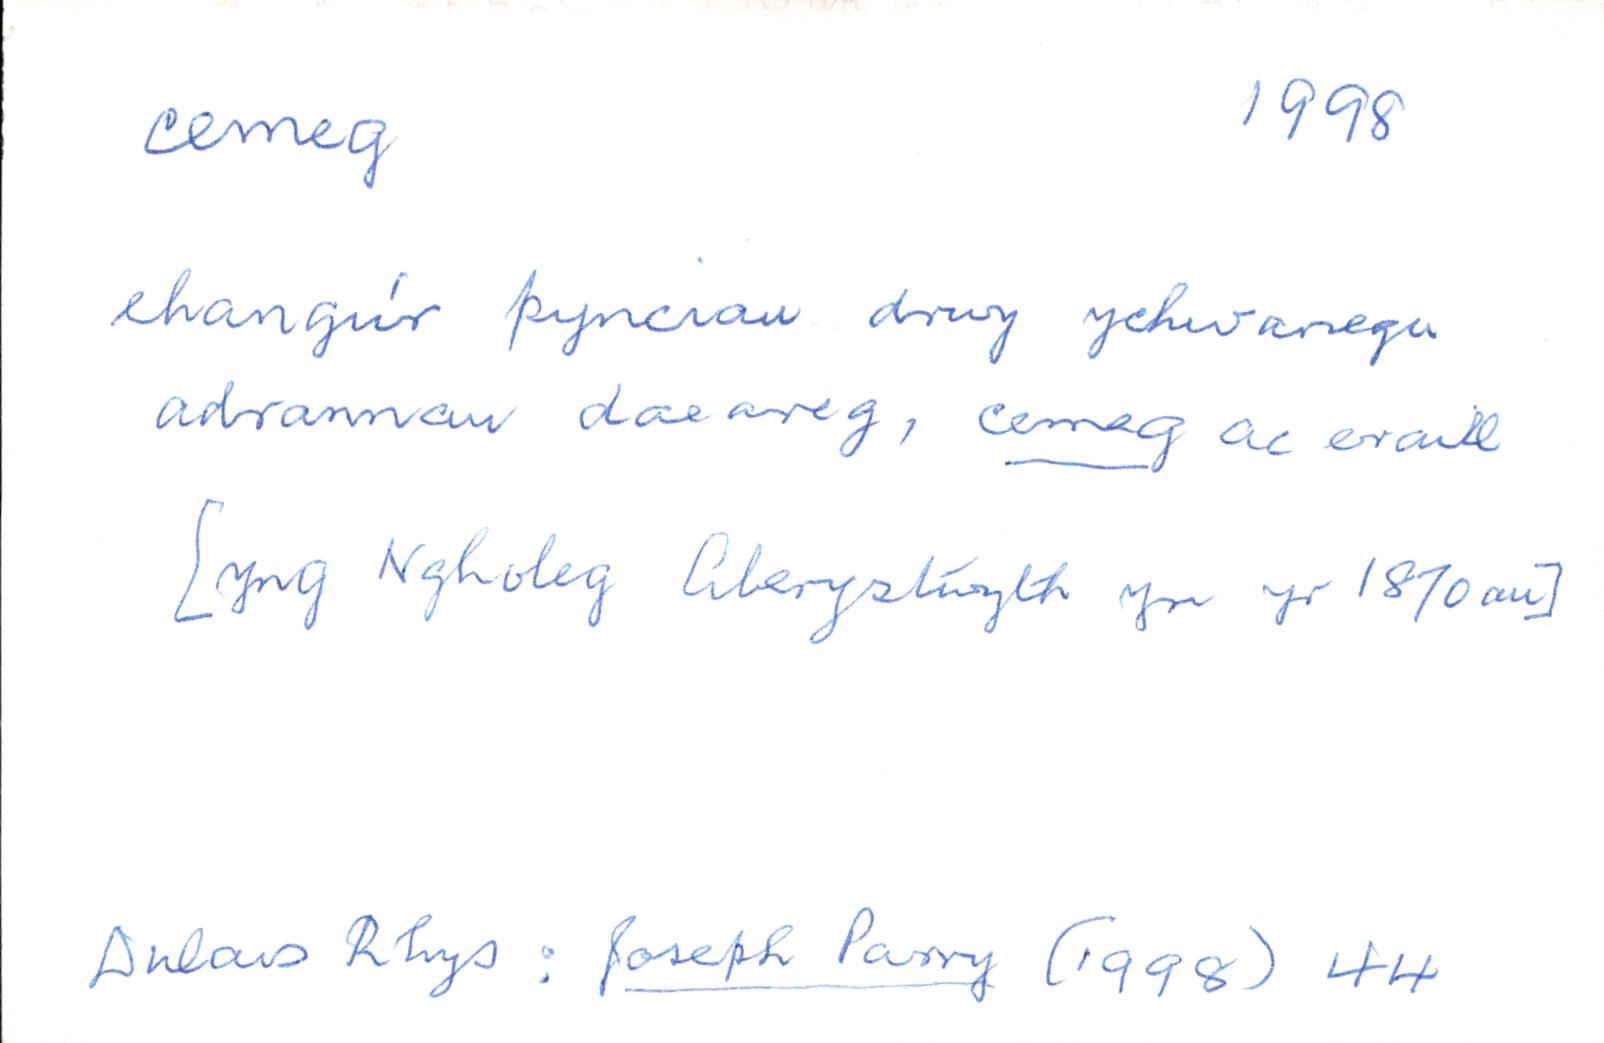 cemeg 1998
ehangu'r pynciau drwy ychwanegu
adrannau daeareg, cemeg ac eraill
[yng Ngholeg Aberystwyth yn yr 1870au]
Dulais Rhys : Joseph Parry (1998) 44